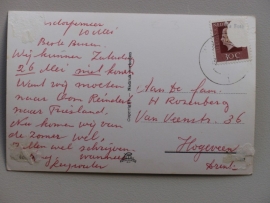 10 Mei
Beste Buren.
Wij kunnen Zaterdag
26 Mei niet komen
Want wij moeten
naar Oom Reinder
naar Friesland.
Nu komen wij van
de zomer wel,
wel schrijven
wanneer
Aan De fam.
H Rozenberg
Van Veenstr. 36
Hogeveen
Drente